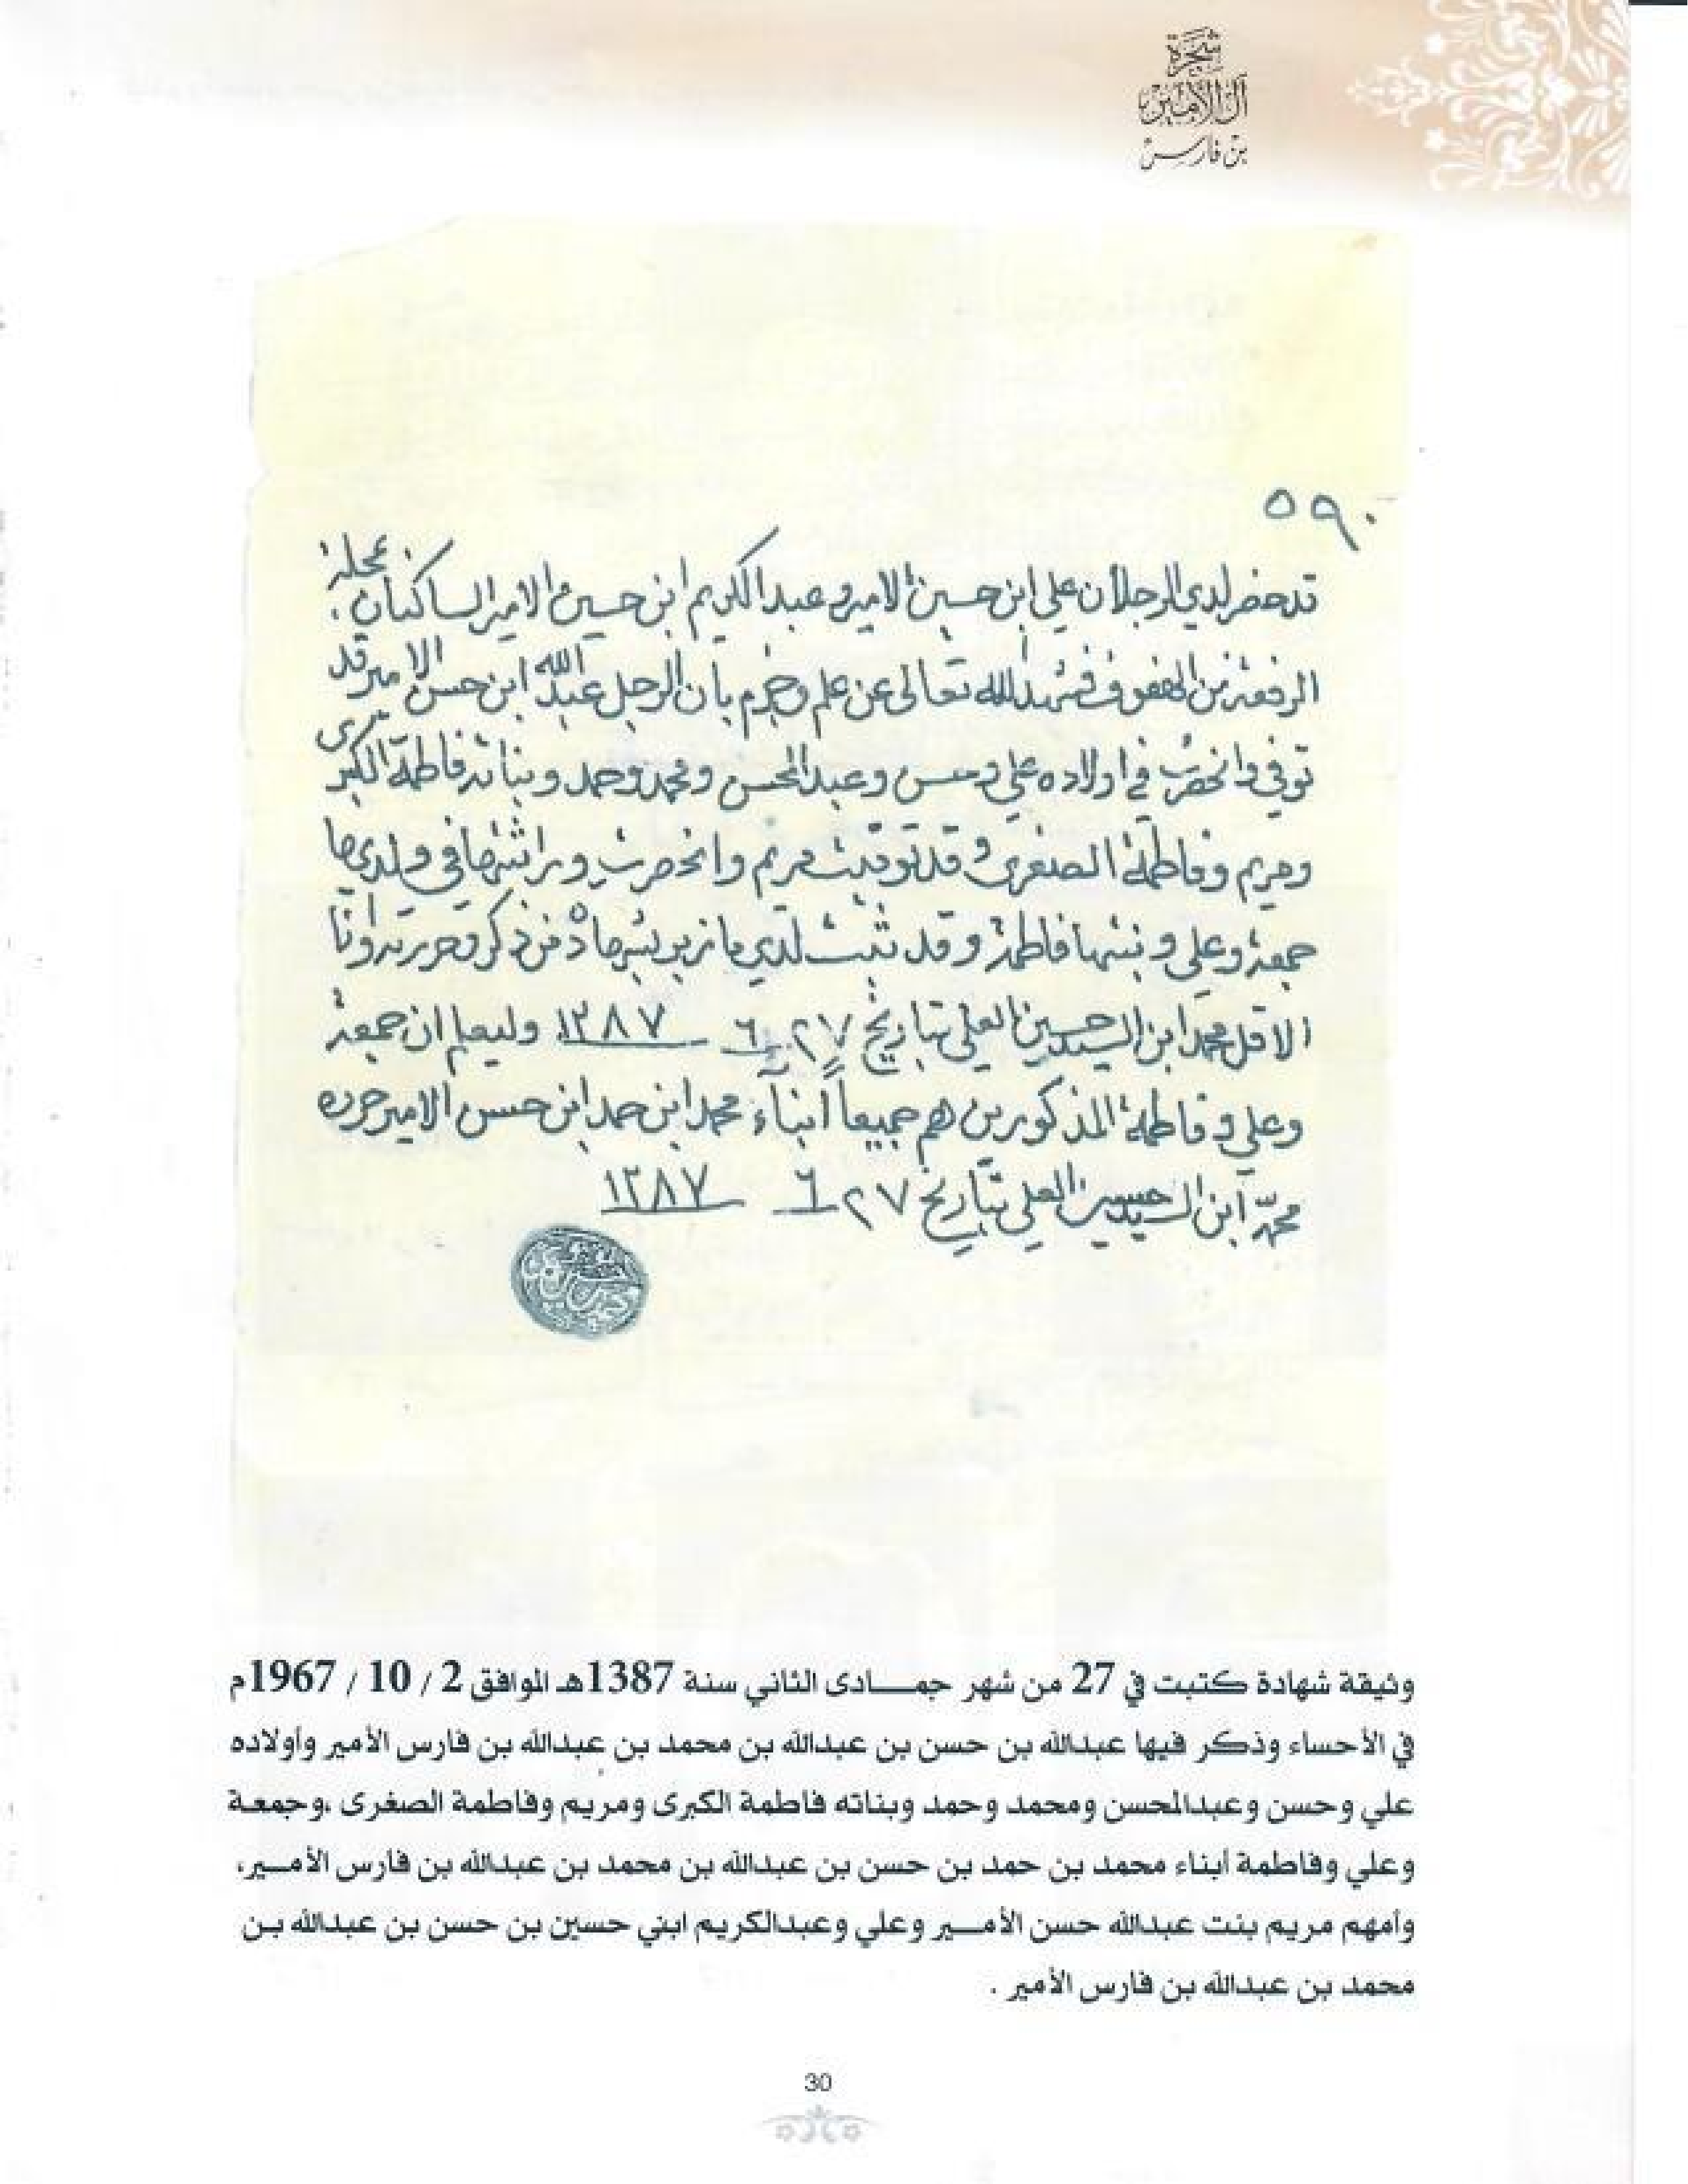 شجرة
آل الأمير
بن فارس
٥٩٠
قد حضر لدي الرجلان علي ابن حسين الامير وعبد الكريم ابن حسين الامير الساكنان محلة
الرفعة من الهفوف فشهدا لله تعالى عن علم وجزم بان الرجل عبد الله ابن حسن الامير قد
توفي وانحصرت في اولاده علي وحسن وعبد المحسن ومحمد وحمد وبناته فاطمة الكبرى
ومريم وفاطمة الصغرى وقد توفيت مريم وانحصرت وراثتها في ولديها
جمعة وعلي وبنتها فاطمة وقد ثبت لدي ما زبر بشهادة من ذكر وحررته وأنا
الاقل محمد ابن السيد حسين العلي بتاريخ ٢٧ ٦ ١٣٨٧ وليعلم ان جمعة
وعلي وفاطمة المذكورين هم جميعاً أبناء محمد ابن حمد ابن حسن الامير حرره
محمد ابن السيد حسين العلي بتاريخ ٢٧ ٦ ١٣٨٧
وثيقة شهادة كتبت في 27 من شهر جمادى الثاني سنة 1387هـ الموافق 2 / 10 / 1967م
في الأحساء وذكر فيها عبدالله بن حسن بن عبدالله بن محمد بن عبدالله بن فارس الأمير وأولاده
علي وحسن وعبدالمحسن ومحمد وحمد وبناته فاطمة الكبرى ومريم وفاطمة الصغرى ،وجمعة
وعلي وفاطمة أبناء محمد بن حمد بن حسن بن عبدالله بن محمد بن عبدالله بن فارس الأمير،
وأمهم مريم بنت عبدالله حسن الأمير وعلي وعبدالكريم ابني حسين بن حسن بن عبدالله بن
محمد بن عبدالله بن فارس الأمير .
30